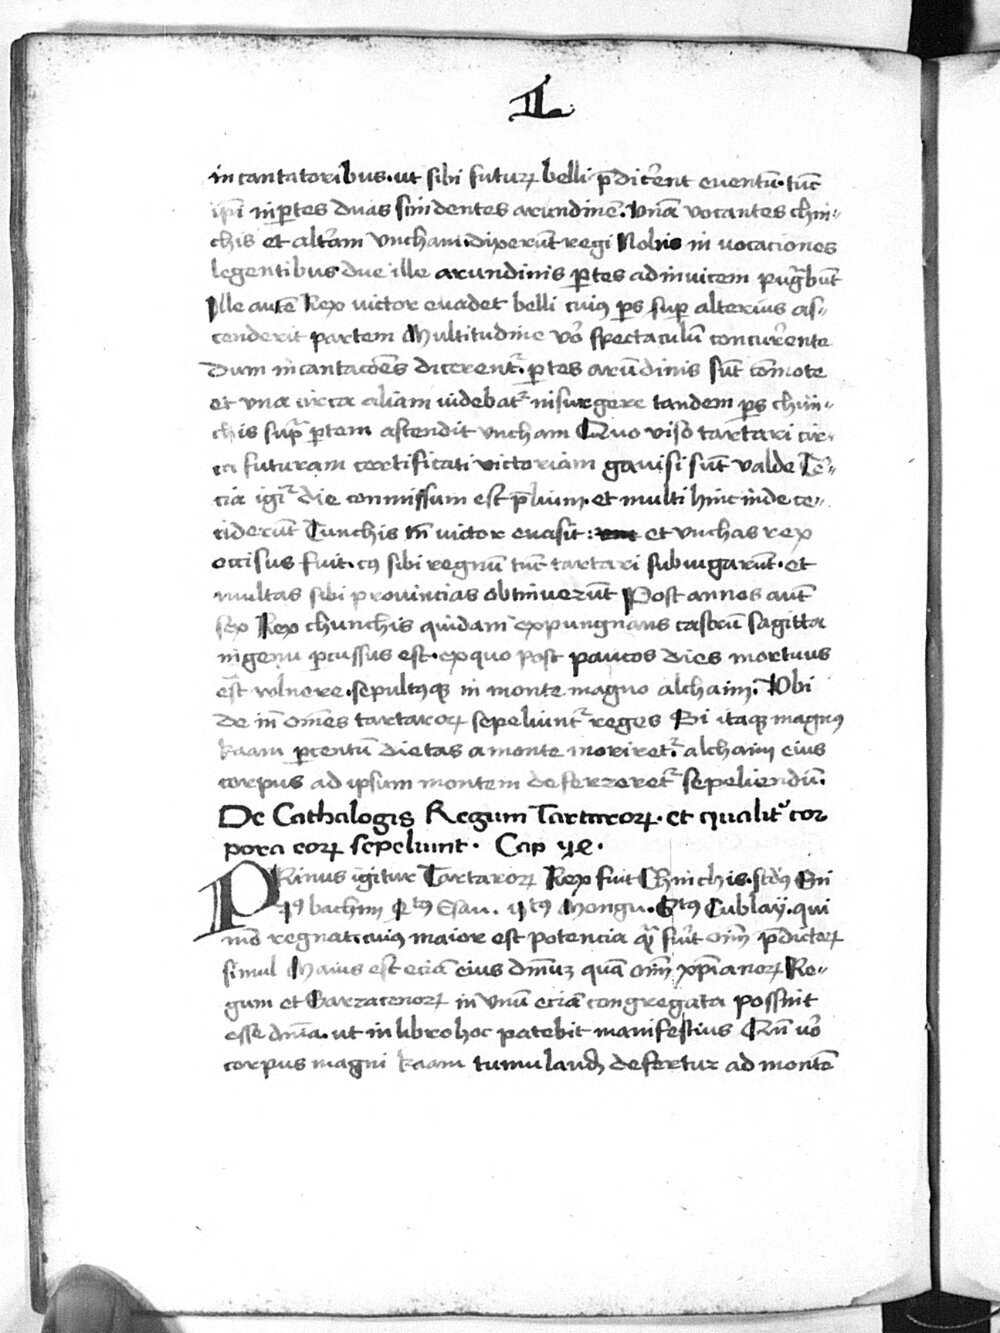 IL
incantatoribus·ut sibi futurꝝ belli p̄dicerent euentū·tūc
ip̄i in ꝑtes duas sindentes arundinē. Vnā vocantes chin⸗
chis et alt̓am vncham·dixerūt regi Nobis in vocaciones
legentibus due ille arundinis ꝑtes adinuicem pugᷓbūt
Ille autē Rex victor euadet belli cuiꝰ ꝑs suꝑ alterius as⸗
cenderit partem Multitudine vo̓ spectaculū concurrente
Dum incantacōes dicerentᷣ· ꝑtes arūdinis sūt cōmote
et vna circa aliam videbatᷣ insurgere tandem ꝑs chin⸗
chis supᷓ ꝑtem ascendit vncham Quo viso tartari cir⸗
ca futuram certificati victoriam gauisi sūt valde Te⸗
cia igiᷣ die commissum est p̄lium·et multi hincinde ce⸗
ciderūt Cunchis tn̄ victor euasit: et vnchas rex
occisus fuit·cꝰ sibi regnū tūc tartari subiugarūt·et
multas sibi prouincias obtinuerūt Post annos aūt
sex Rex chunchis quidam expungnans castrū sagitta
in genu ꝑcussus est·ex quo post paucos dies mortuus
est volnere·sepultusqꝫ in monte magno alchaim. Vbi
de in omēs tartarorꝝ sepeliuntᷣ reges Si itaqꝫ magnꝰ
kaam ꝑcentū dietas a monte moriretᷣ alchaim eius
corpus ad ipsum montem deferreretᷣ sepeliendū.
De Cathalogis Regum Tartarorꝝ·et qualit̓ cor
pora eorꝝ sepeliunt· Cap
PRimus igitur Tartarorꝝ Rex fuit Chinchis·scdꝰ Cui
bachim Esau. Mongu. Cublay·qui
mō regnat·cuiꝰ maior est potencia qᷓ fuit om̄ p̄dictorꝝ
simul Maius est eciā eius dn̄iuꝫ quā om̄ xp̄ianorꝝ Re⸗
gum et Sarracenorꝝ in vnū eciā congregata possint
esse dn̄ia·ut in libro hoc patebit manifestius Cū vo̓
corpus magni kaam tumulandū defertur ad montē